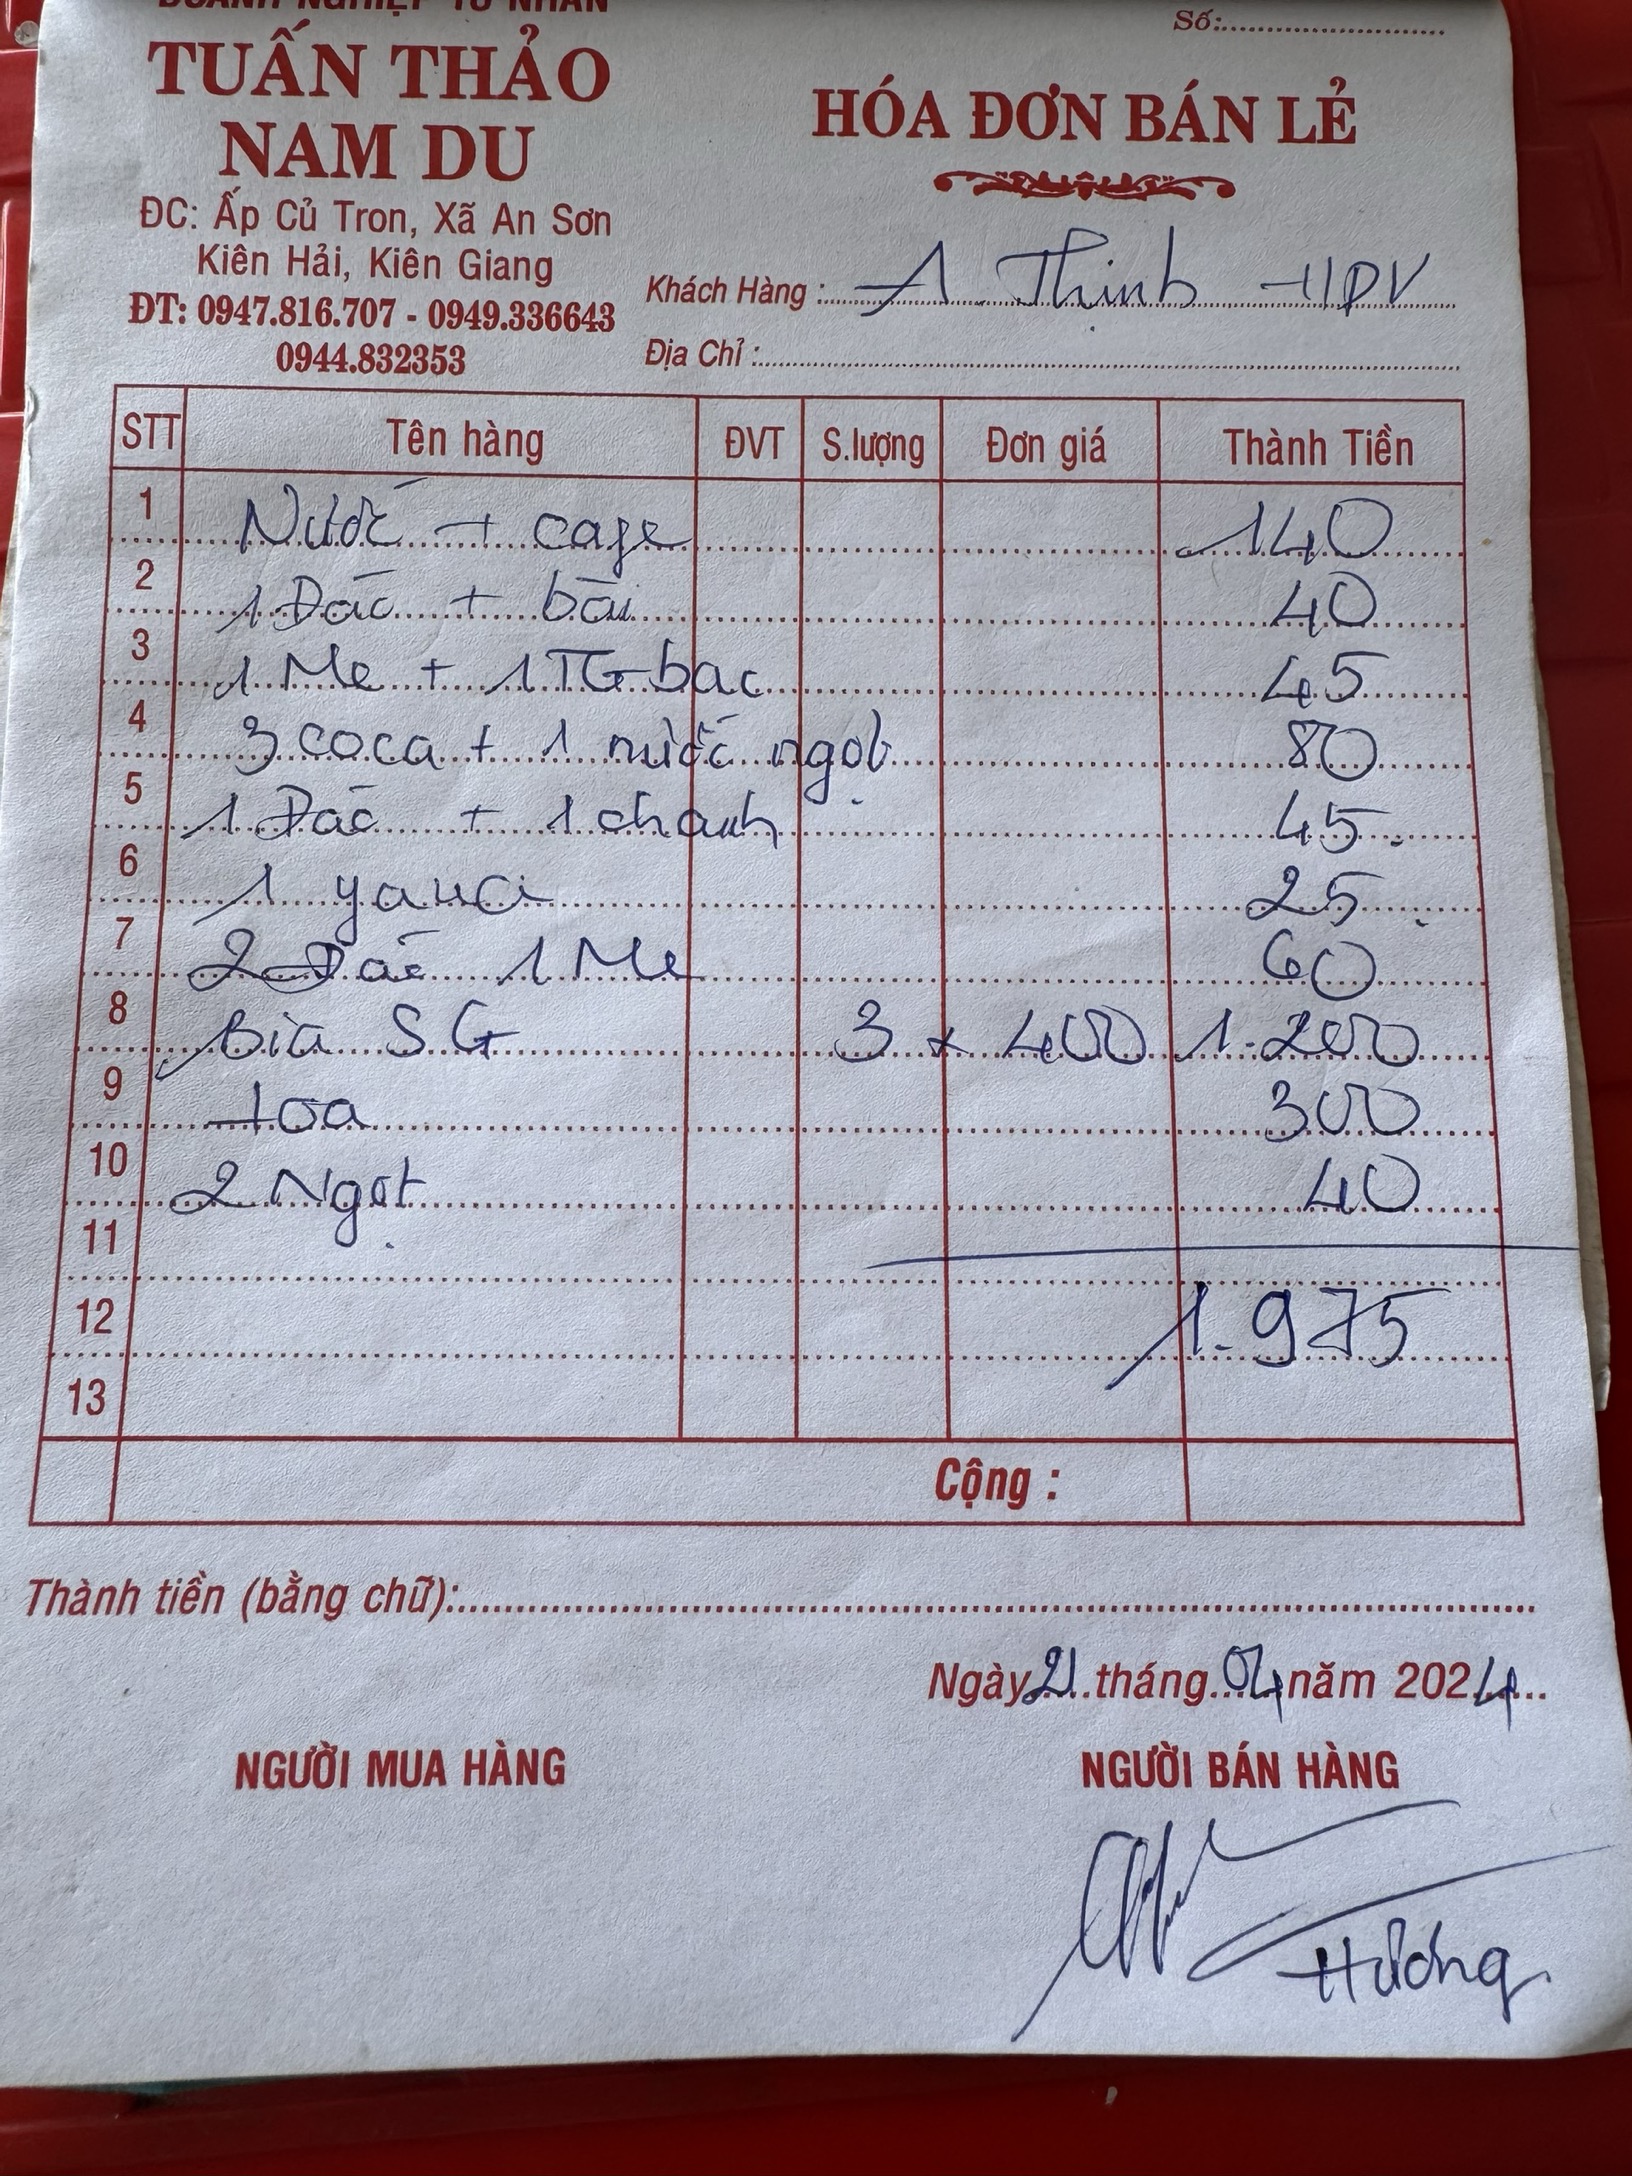 DOANH NGHIỆP TƯ NHÂN
TUẤN THẢO
NAM DU
ĐC: Ấp Củ Tron, Xã An Sơn
Kiên Hải, Kiên Giang
ĐT: 0947.816.707 - 0949.336643
0944.832353
Số:
HÓA ĐƠN BÁN LẺ
Khách Hàng : A. Thịnh HDV
Địa Chỉ :
STT Tên hàng ĐVT S.lượng Đơn giá Thành Tiền
1 Nước + cafe 140
2 1 Đác + 40
3 1 Me + 1 TG bạc 45
4 3 coca + 1 nước ngọt 80
5 1 Đác + 1 chanh 45
6 1 25
7 2 Đác 1 Me 60
8 Bia SG 3 x 400 1.200
9 loa 300
10 2 Ngọt 40
11
12 1.975
13
Cộng :
Thành tiền (bằng chữ):
Ngày 21 tháng 04 năm 2024
NGƯỜI MUA HÀNG NGƯỜI BÁN HÀNG
Hương